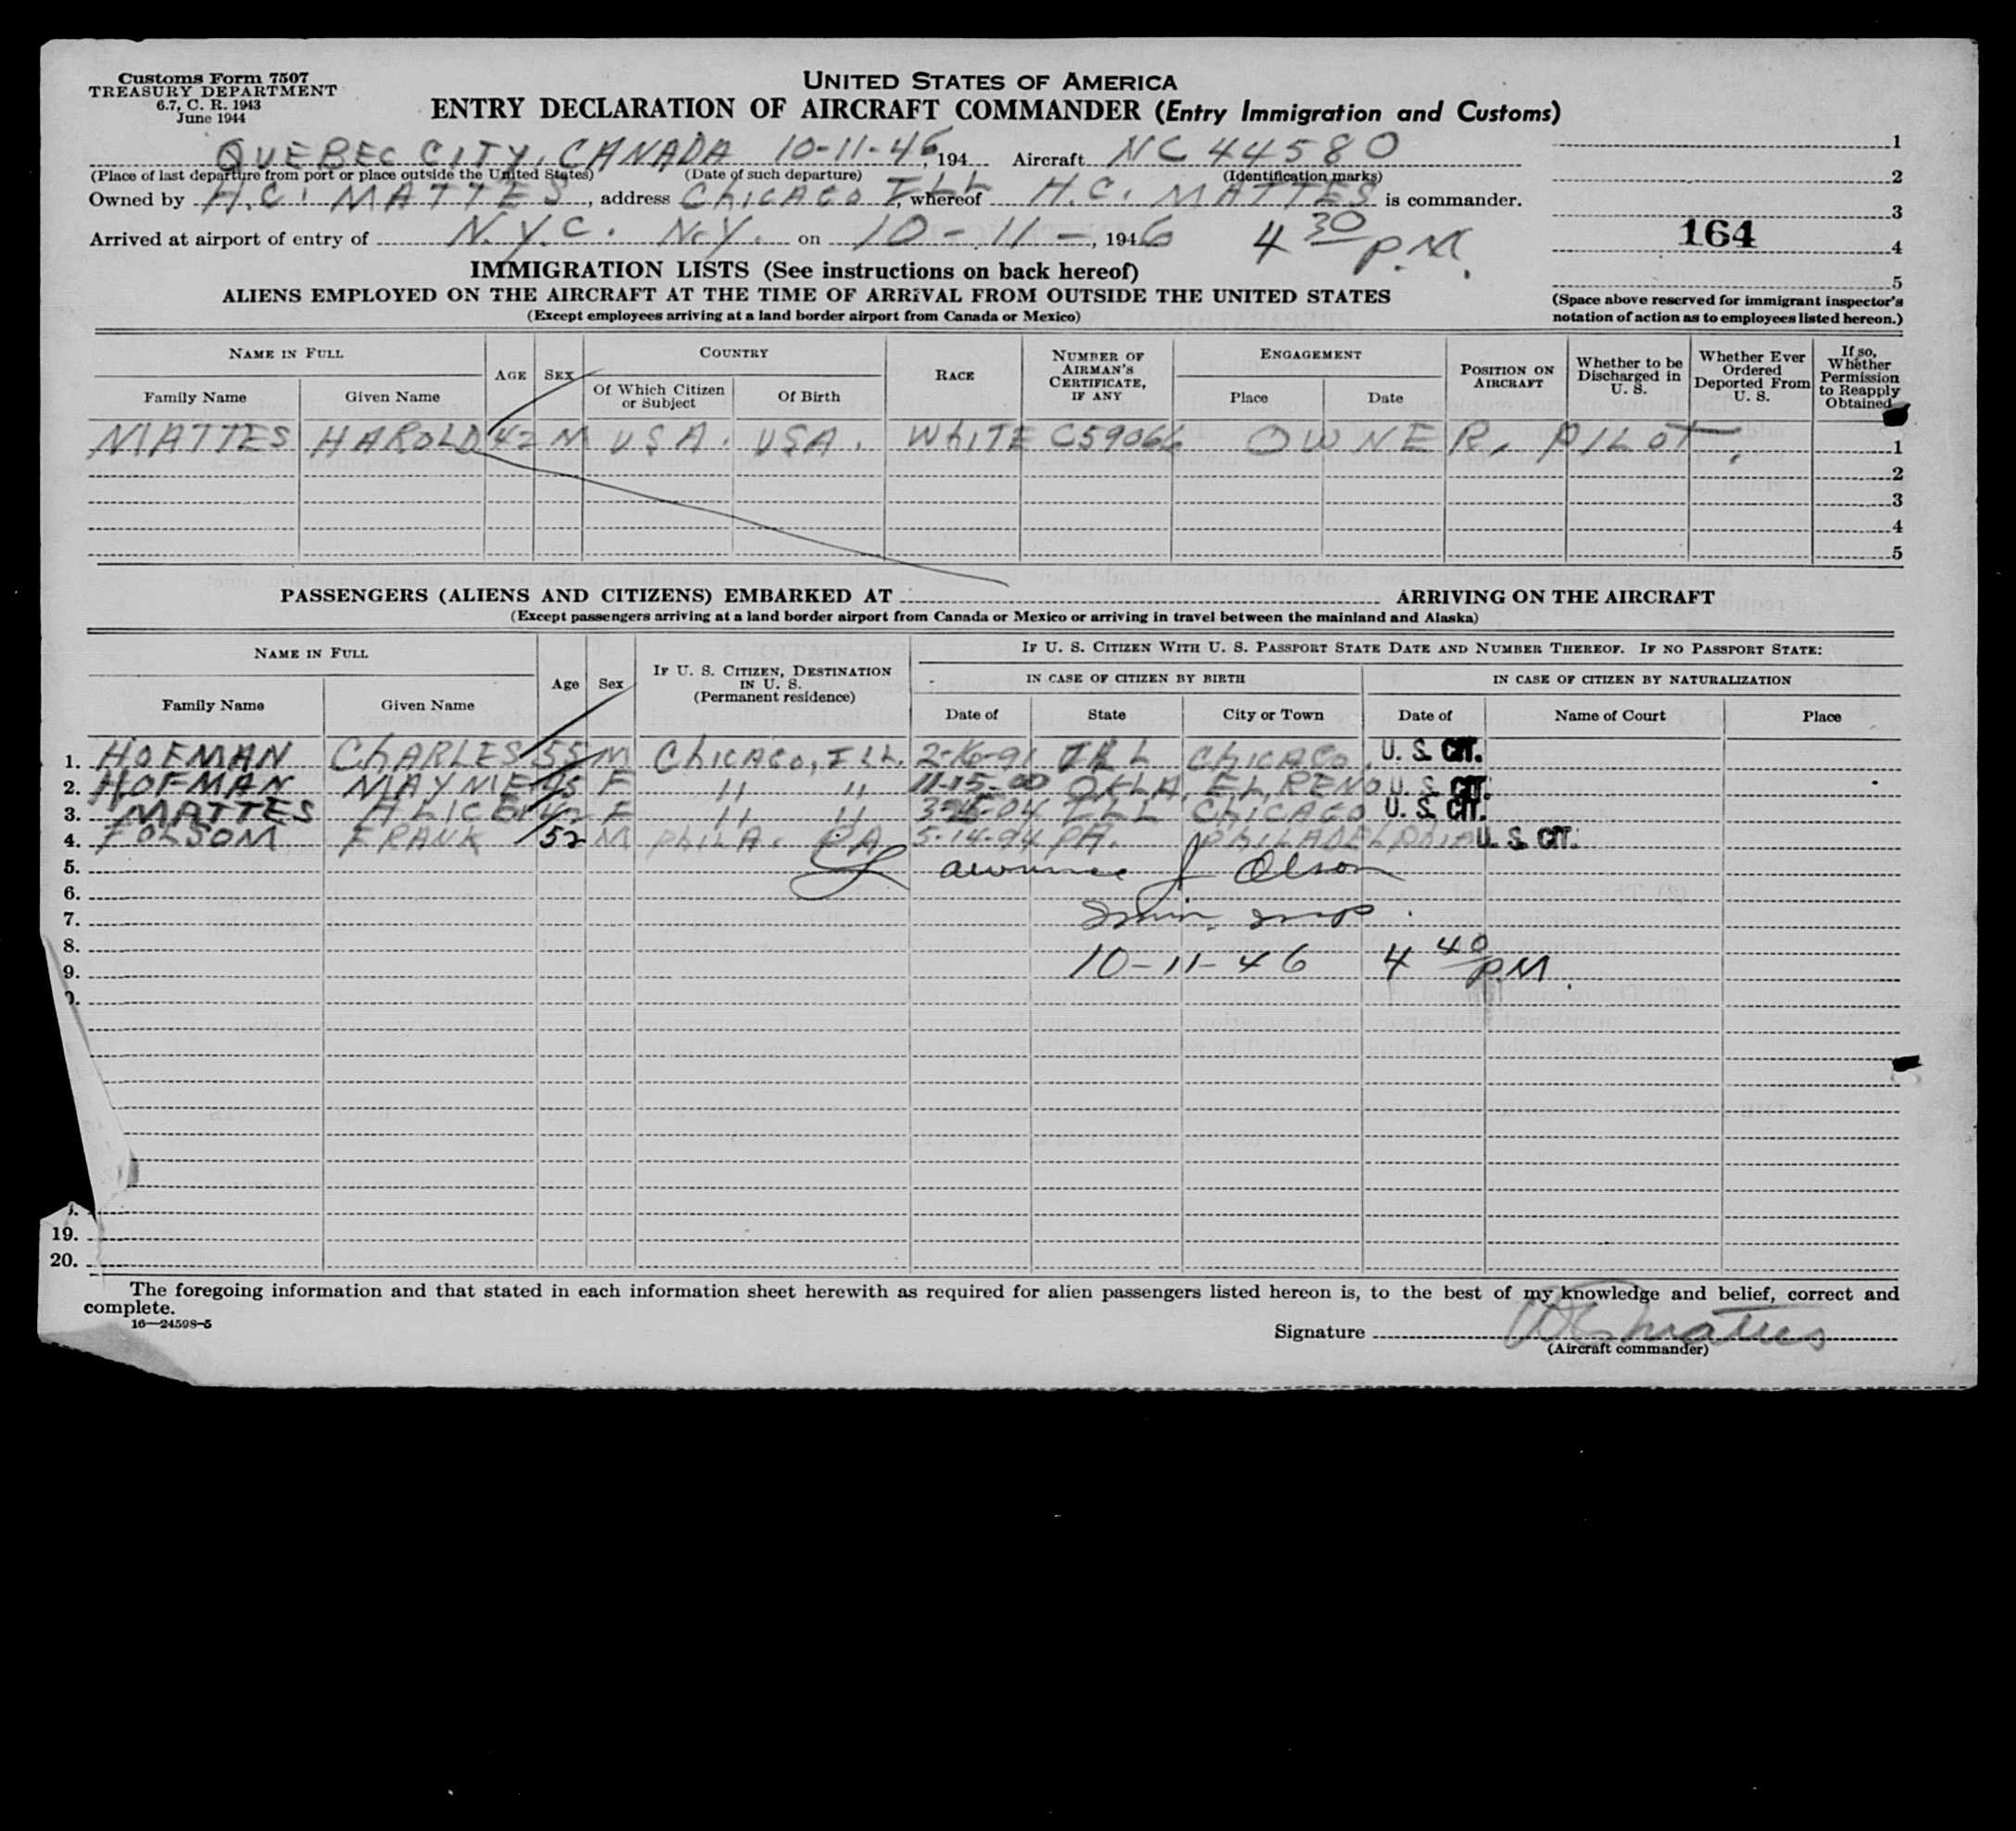 Customs Form 7507
TREASURY DEPARTMENT
6.7, C. R. 1943
June 1944
UNITED STATES OF AMERICA
ENTRY DECLARATION OF AIRCRAFT COMMANDER (Entry Immigration and Customs)
QUEBEC CITY, CANADA 10-11-46, 194 Aircraft NC 44580
(Place of last departure from port or place outside the United States) (Date of such departure) (Identification marks)
Owned by H.C. MATTES, address CHICAGO ILL, whereof H.C. MATTES is commander.
Arrived at airport of entry of N.Y.C. N.Y. on 10-11-, 1946 4 30 P.M.
1
2
3
164 4
5
(Space above reserved for immigrant inspector's notation of action as to employees listed hereon.)
IMMIGRATION LISTS (See instructions on back hereof)
ALIENS EMPLOYED ON THE AIRCRAFT AT THE TIME OF ARRIVAL FROM OUTSIDE THE UNITED STATES
(Except employees arriving at a land border airport from Canada or Mexico)
NAME IN FULL AGE SEX COUNTRY RACE NUMBER OF AIRMAN'S CERTIFICATE, IF ANY ENGAGEMENT POSITION ON AIRCRAFT Whether to be Discharged in U. S. Whether Ever Ordered Deported From U. S. If so, Whether Permission to Reapply Obtained
Family Name Given Name Of Which Citizen or Subject Of Birth Place Date
MATTES HAROLD 42 M USA. USA. WHITE C59066 OWNER, PILOT. 1
2
3
4
5
PASSENGERS (ALIENS AND CITIZENS) EMBARKED AT ARRIVING ON THE AIRCRAFT
(Except passengers arriving at a land border airport from Canada or Mexico or arriving in travel between the mainland and Alaska)
NAME IN FULL Age Sex IF U. S. CITIZEN, DESTINATION IN U. S. (Permanent residence) IF U. S. CITIZEN WITH U. S. PASSPORT STATE DATE AND NUMBER THEREOF. IF NO PASSPORT STATE:
IN CASE OF CITIZEN BY BIRTH IN CASE OF CITIZEN BY NATURALIZATION
Family Name Given Name Date of State City or Town Date of Name of Court Place
1. HOFMAN CHARLES 55 M CHICAGO, ILL. 2-16-91 ILL CHICAGO U. S. CIT.
2. HOFMAN MAYNIE 45 F " " 11-15-00 OKLA, EL RENO U. S. CIT.
3. MATTES ALICE 42 F " " 04 ILL CHICAGO U. S. CIT.
4. FOLSOM FRANK 52 M PHILA. PA 5-14-94 PA. PHILADELPHIA U. S. CIT.
5. Lawrence J Olson
6.
7. Imm. Insp.
8.
9. 10-11-46 4 40 P.M.
19.
20.
The foregoing information and that stated in each information sheet herewith as required for alien passengers listed hereon is, to the best of my knowledge and belief, correct and
complete.
16—24598-5
Signature HC Mattes
(Aircraft commander)